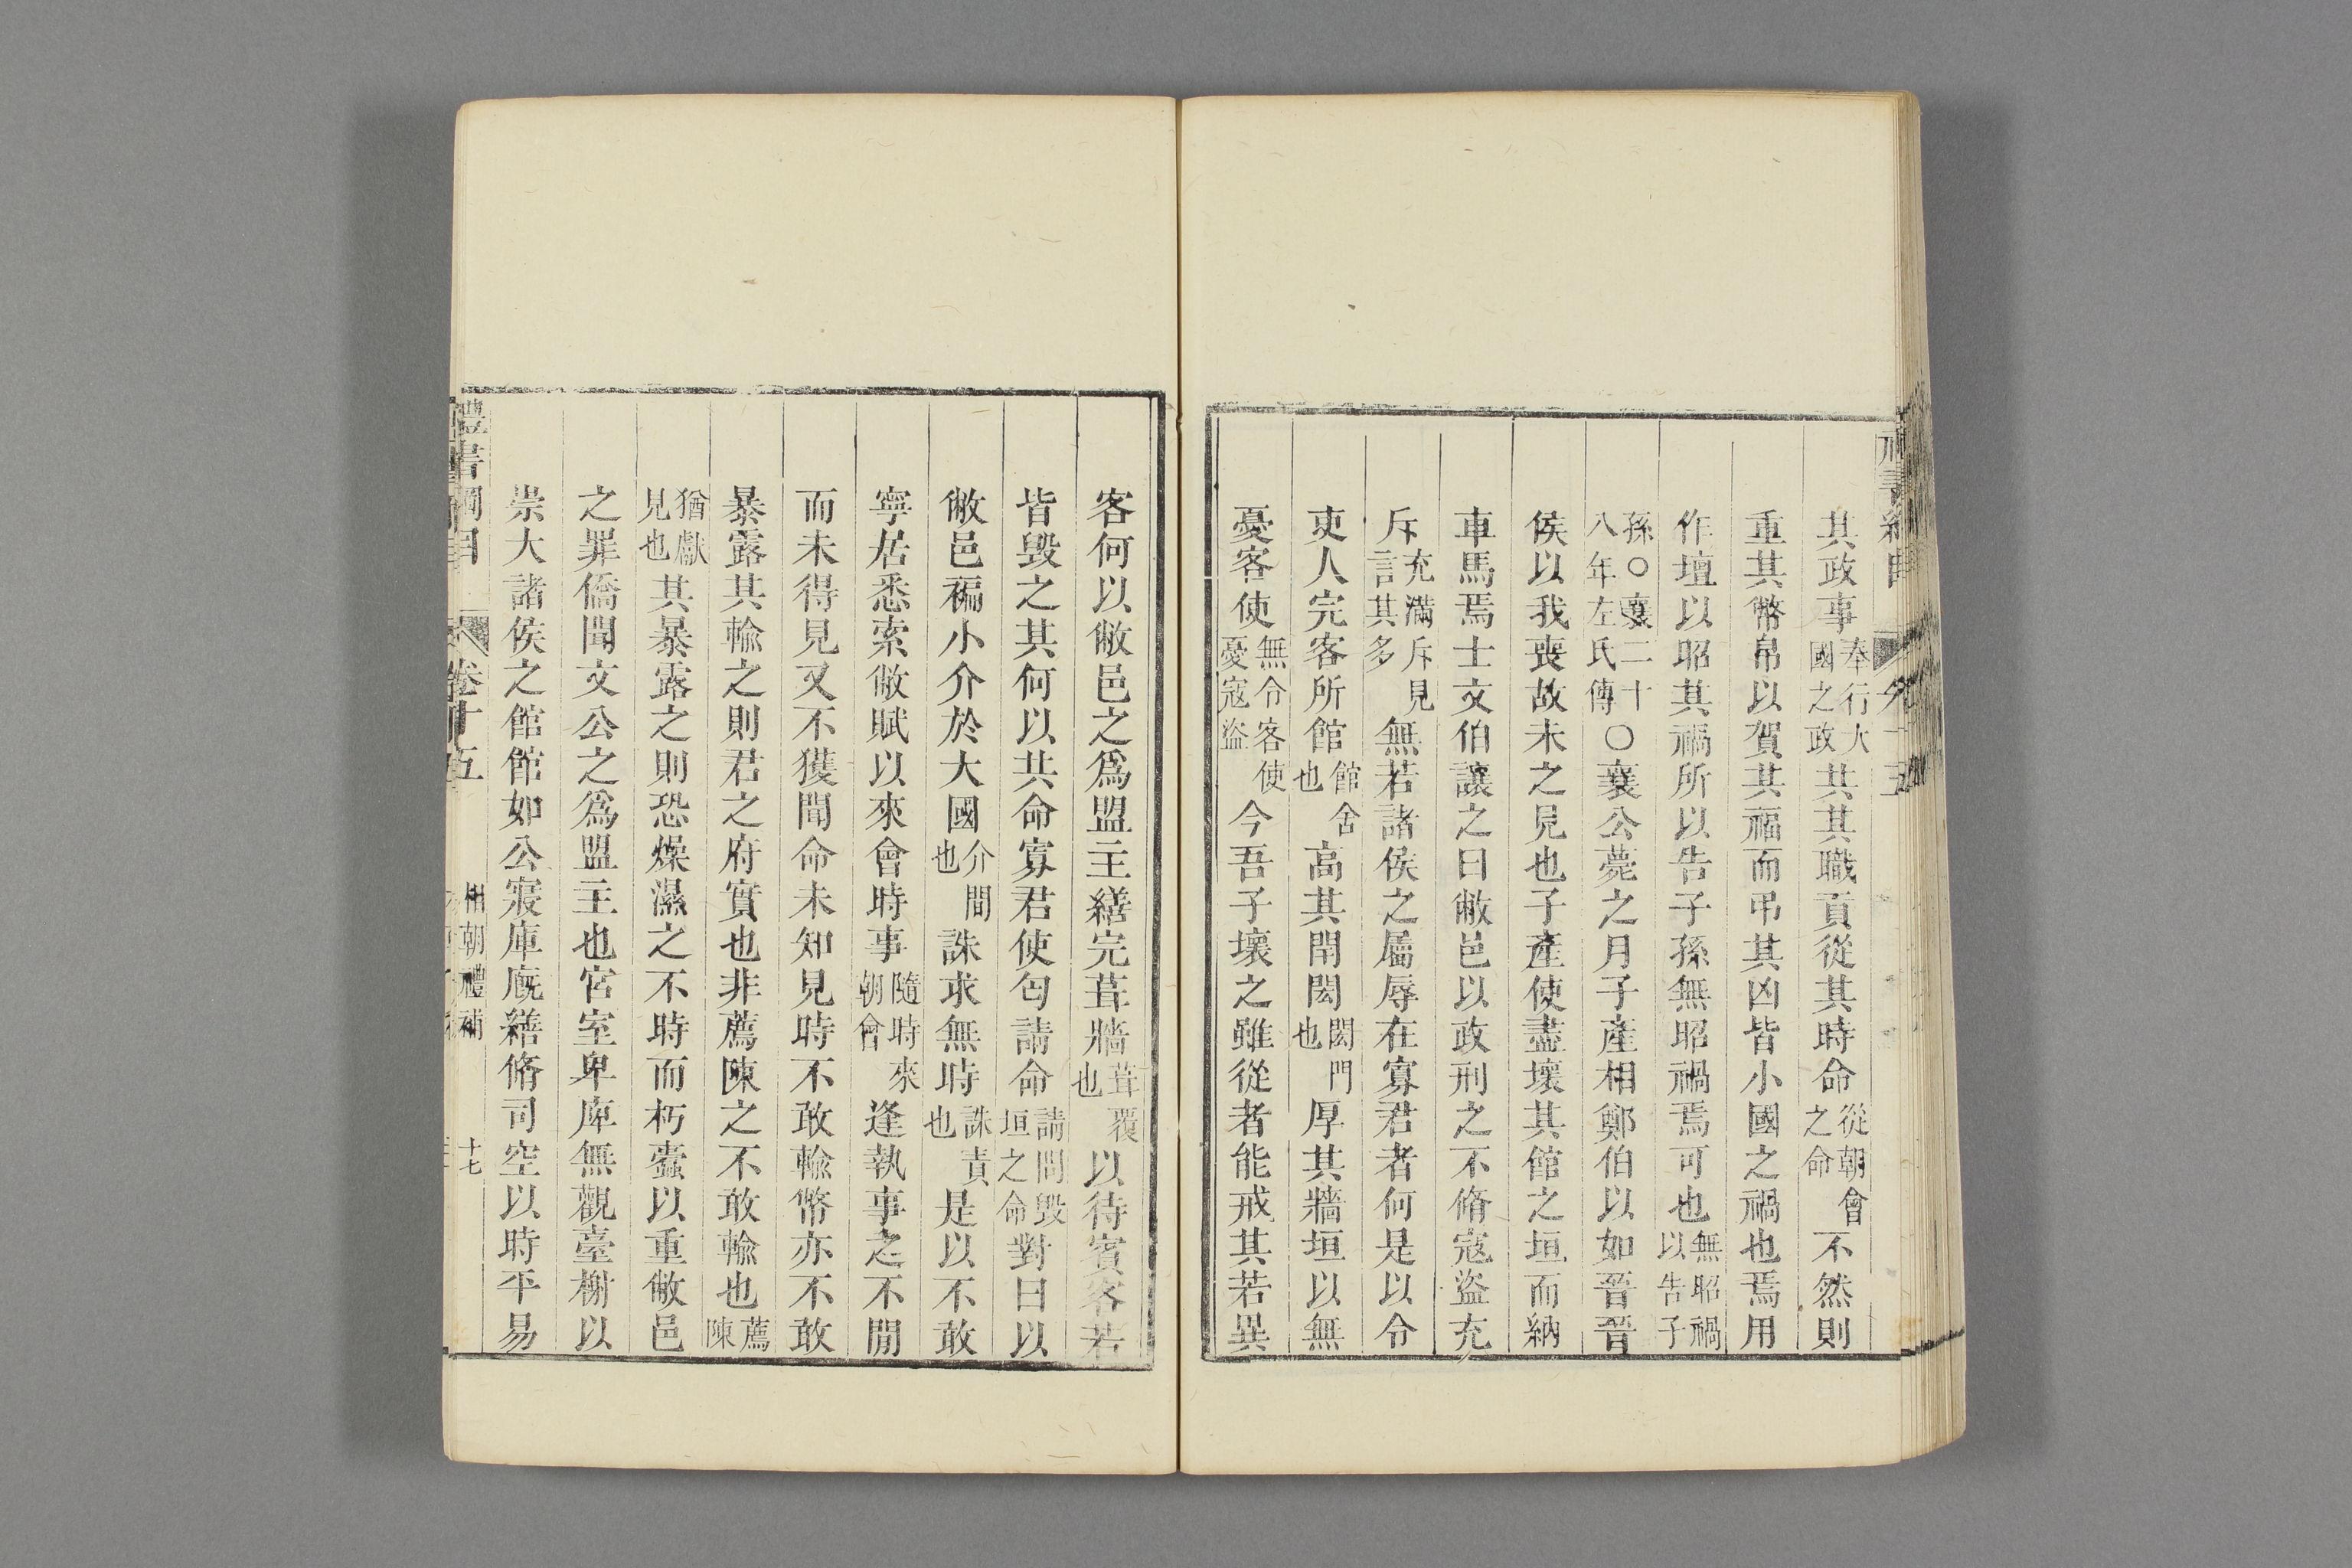 其政事奉行大國之政共其職貢從其時命從朝會之命不然則
重其幣帛以賀其福而弔其凶皆小國之禍也焉用
作壇以昭其禍所以告子孫無昭禍焉可也無昭禍以告子
孫○襄二十八年左氏傳○襄公薨之月子產相鄭伯以如晉晉
侯以我喪故未之見也子產使盡壞其館之垣而納
車馬焉士文伯讓之曰敝邑以政刑之不脩寇盜充
斥充滿斥見言其多無若諸侯之屬辱在寡君者何是以令
吏人完客所館館舍也高其閈閎閎門也厚其牆垣以無
憂客使無令客使憂寇盜今吾子壞之雖從者能戒其若異
客何以敝邑之爲盟主繕完葺牆葺覆也以待賓客若
皆毀之其何以共命寡君使匄請命請問毀垣之命對曰以
敝邑褊小介於大國介間也誅求無時誅責也是以不敢
寧居悉索敝賦以來會時事隨時來朝會逢執事之不閒
而未得見又不獲聞命未知見時不敢輸幣亦不敢
暴露其輸之則君之府實也非薦陳之不敢輸也薦陳
猶獻見也其暴露之則恐燥濕之不時而朽蠹以重敝邑
之罪僑聞文公之爲盟主也宮室卑庳無觀臺榭以
崇大諸侯之館館如公寢庫廐繕脩司空以時平易
禮書綱目 卷十五 相朝禮補 十七